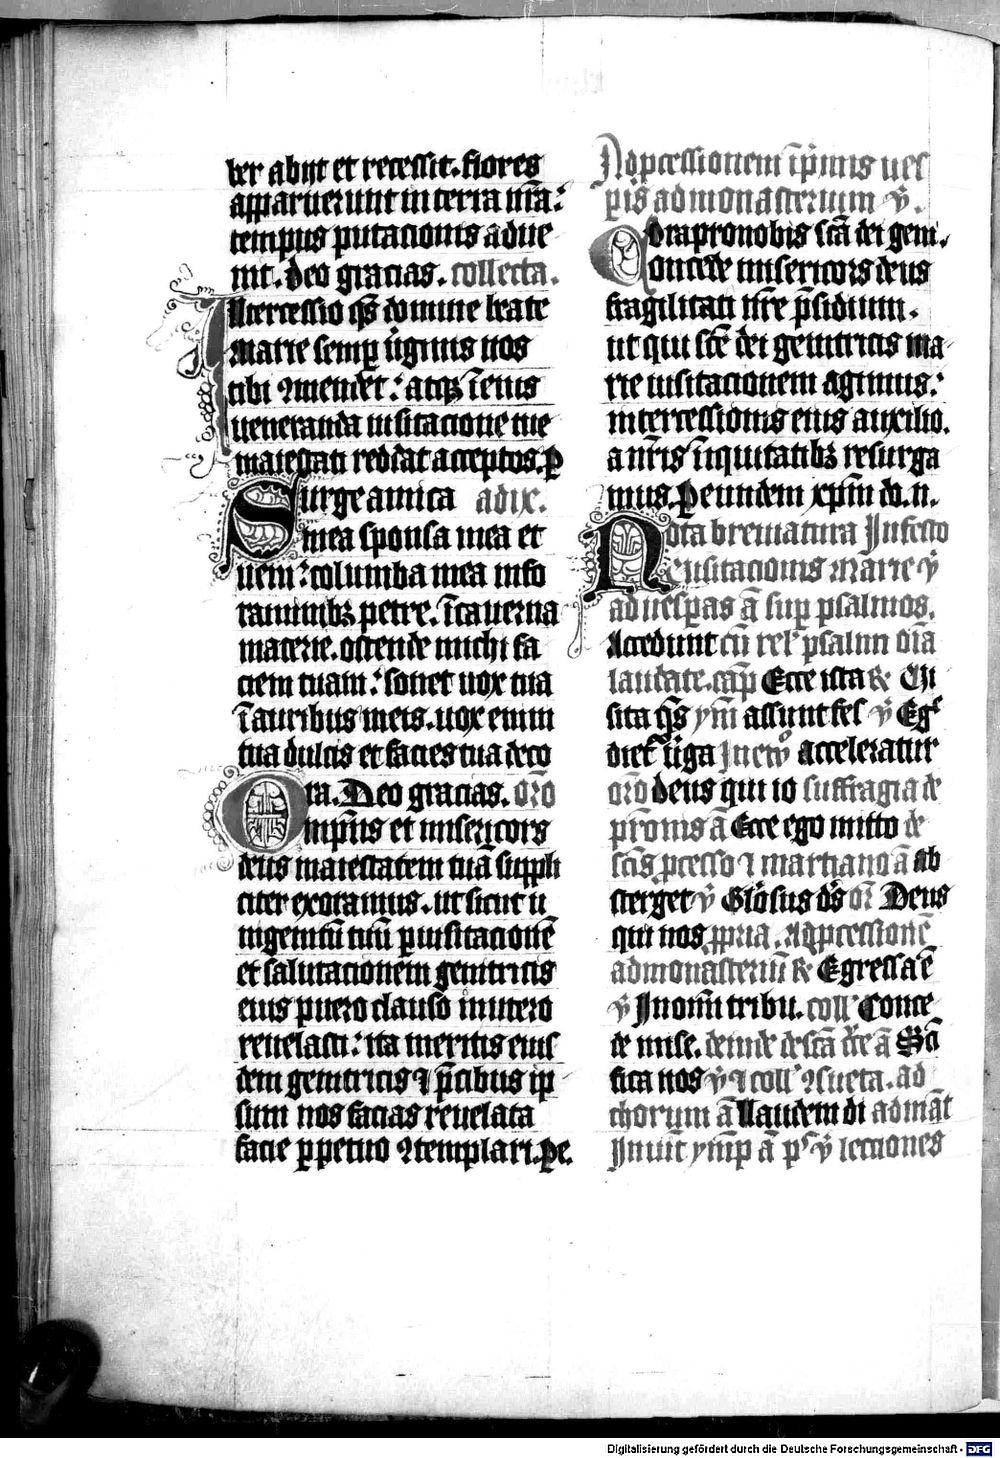 ber abijt et recessit. flores
apparuerunt in terra nr̄a:
tempus putacionis adue
nit. Deo gracias. collecta.
Intercessio qs̄ domine beate
marie semp v̓ginis nos
tibi ꝯmendet: atqꝫ ī eius
veneranda visitacione tue
maiestati reddat acceptos. p
Surge amica ad ix.
mea sponsa mea et
veni: columba mea in fo
raminibꝫ petre. ī cauerna
macerie. ostende michi fa
ciem tuam: sonet vox tua
ī auribus meis. vox enim
tua dulcis et facies tua deco
ra. Deo gracias. oro
Omp̄ns et misericors
deus maiestatem tuā suppli
citer exoramus. ut sicut v
nigenitū tuū p visitacionē
et salutacionem genitricis
eius puero clauso in utero
reuelasti: ita meritis eius
dem genitricis ⁊ p̄cibus ip
sum nos facias reuelata
facie ppetuo ꝯtemplari. pe.
Ad pcessionem ī pmis ves
pis ad monasterium v̓.
Ora pro nobis scā dei geni.
Concede misericors deus
fragilitati nr̄e p̄sidium.
ut qui scē dei genitricis ma
rie visitacionem agimus:
intercessionis eius auxilio.
a nr̄is iniquitatibꝫ resurga
mus. Per eundem xpm̄ do. n.
Nota breuiatura In festo
visitacionis marie v̓
ad vespas ā sup psalmos.
Accedunt cū rel' psalm oīa
laudate. cap Ecce ista R Vi
sita qs̄ ym̄ assunt fes v̓ Eg'
diet̄ v̓ga In eu'o acceleratur
oro deus qui io suffragia de
pronis ā Ecce ego mitto de
scīs pcesso ⁊ martiano ā ab
sterget v̓ Glo'sus ds̄ or̄ Deus
qui nos ppria. Ad pcessionē
ad monasteriū R Egressa ē
v̓ In om̄i tribu. coll' Conce
de mise. deinde de scā c̄ce ā Sā
fica nos v̓ ⁊ coll' ꝯsueta. ad
chorum ā Vaudem di ad mat̄
Inuit ymp ā ps v̓ lectiones
Digitalisierung gefördert durch die Deutsche Forschungsgemeinschaft - DFG